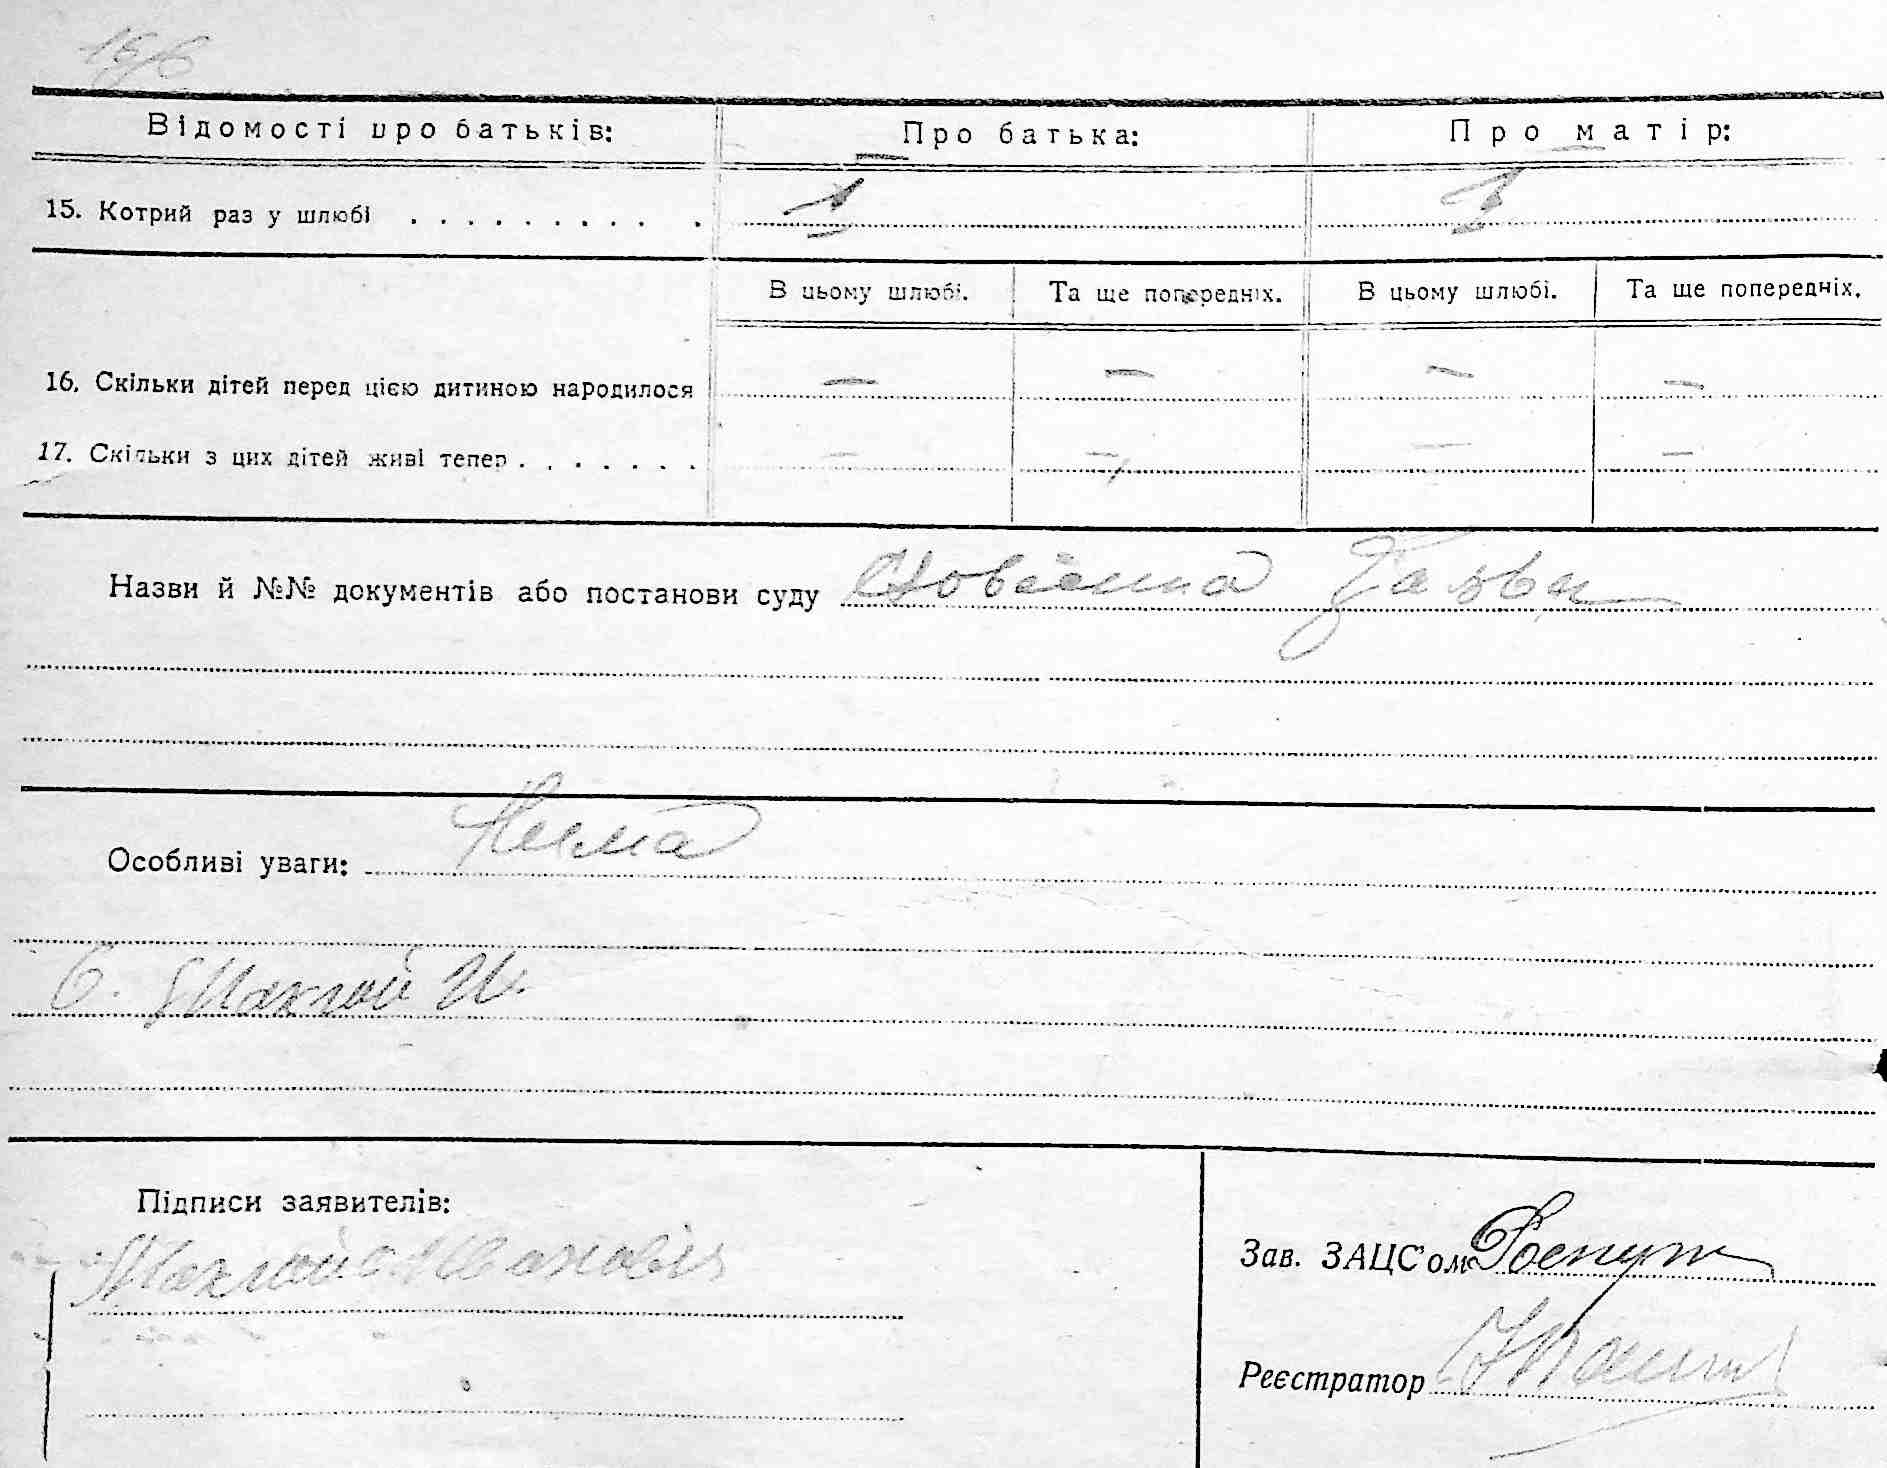 Відомості про батьків:
Про батька:
Про матір:
15. Котрий раз у шлюбі . . . . . . . . . .
1
1
В цьому шлюбі.
Та ще попередніх.
В цьому шлюбі.
Та ще попередніх.
16. Скільки дітей перед цією дитиною народилося
— — — —
17. Скільки з цих дітей живі тепер . . . . . . .
— — — —
Назви й №№ документів або постанови суду
Особливі уваги: Нема
Підписи заявителів:
Зав. ЗАЦС'ом
Реєстратор